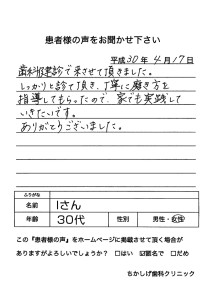 患者様の声をお聞かせ下さい
平成30年4月17日
歯科健診で来させて頂きました。
しっかりと診て頂き、丁寧に磨き方を
指導してもらったので、家でも実践して
いきたいです。
ありがとうございました。
ふりがな
名前 Iさん
年齢 30代 性別 男性・女性
この『患者様の声』をホームページに掲載させて頂く場合が
ありますがよろしいでしょうか？ □はい ☑匿名で □だめ
ちかしげ歯科クリニック